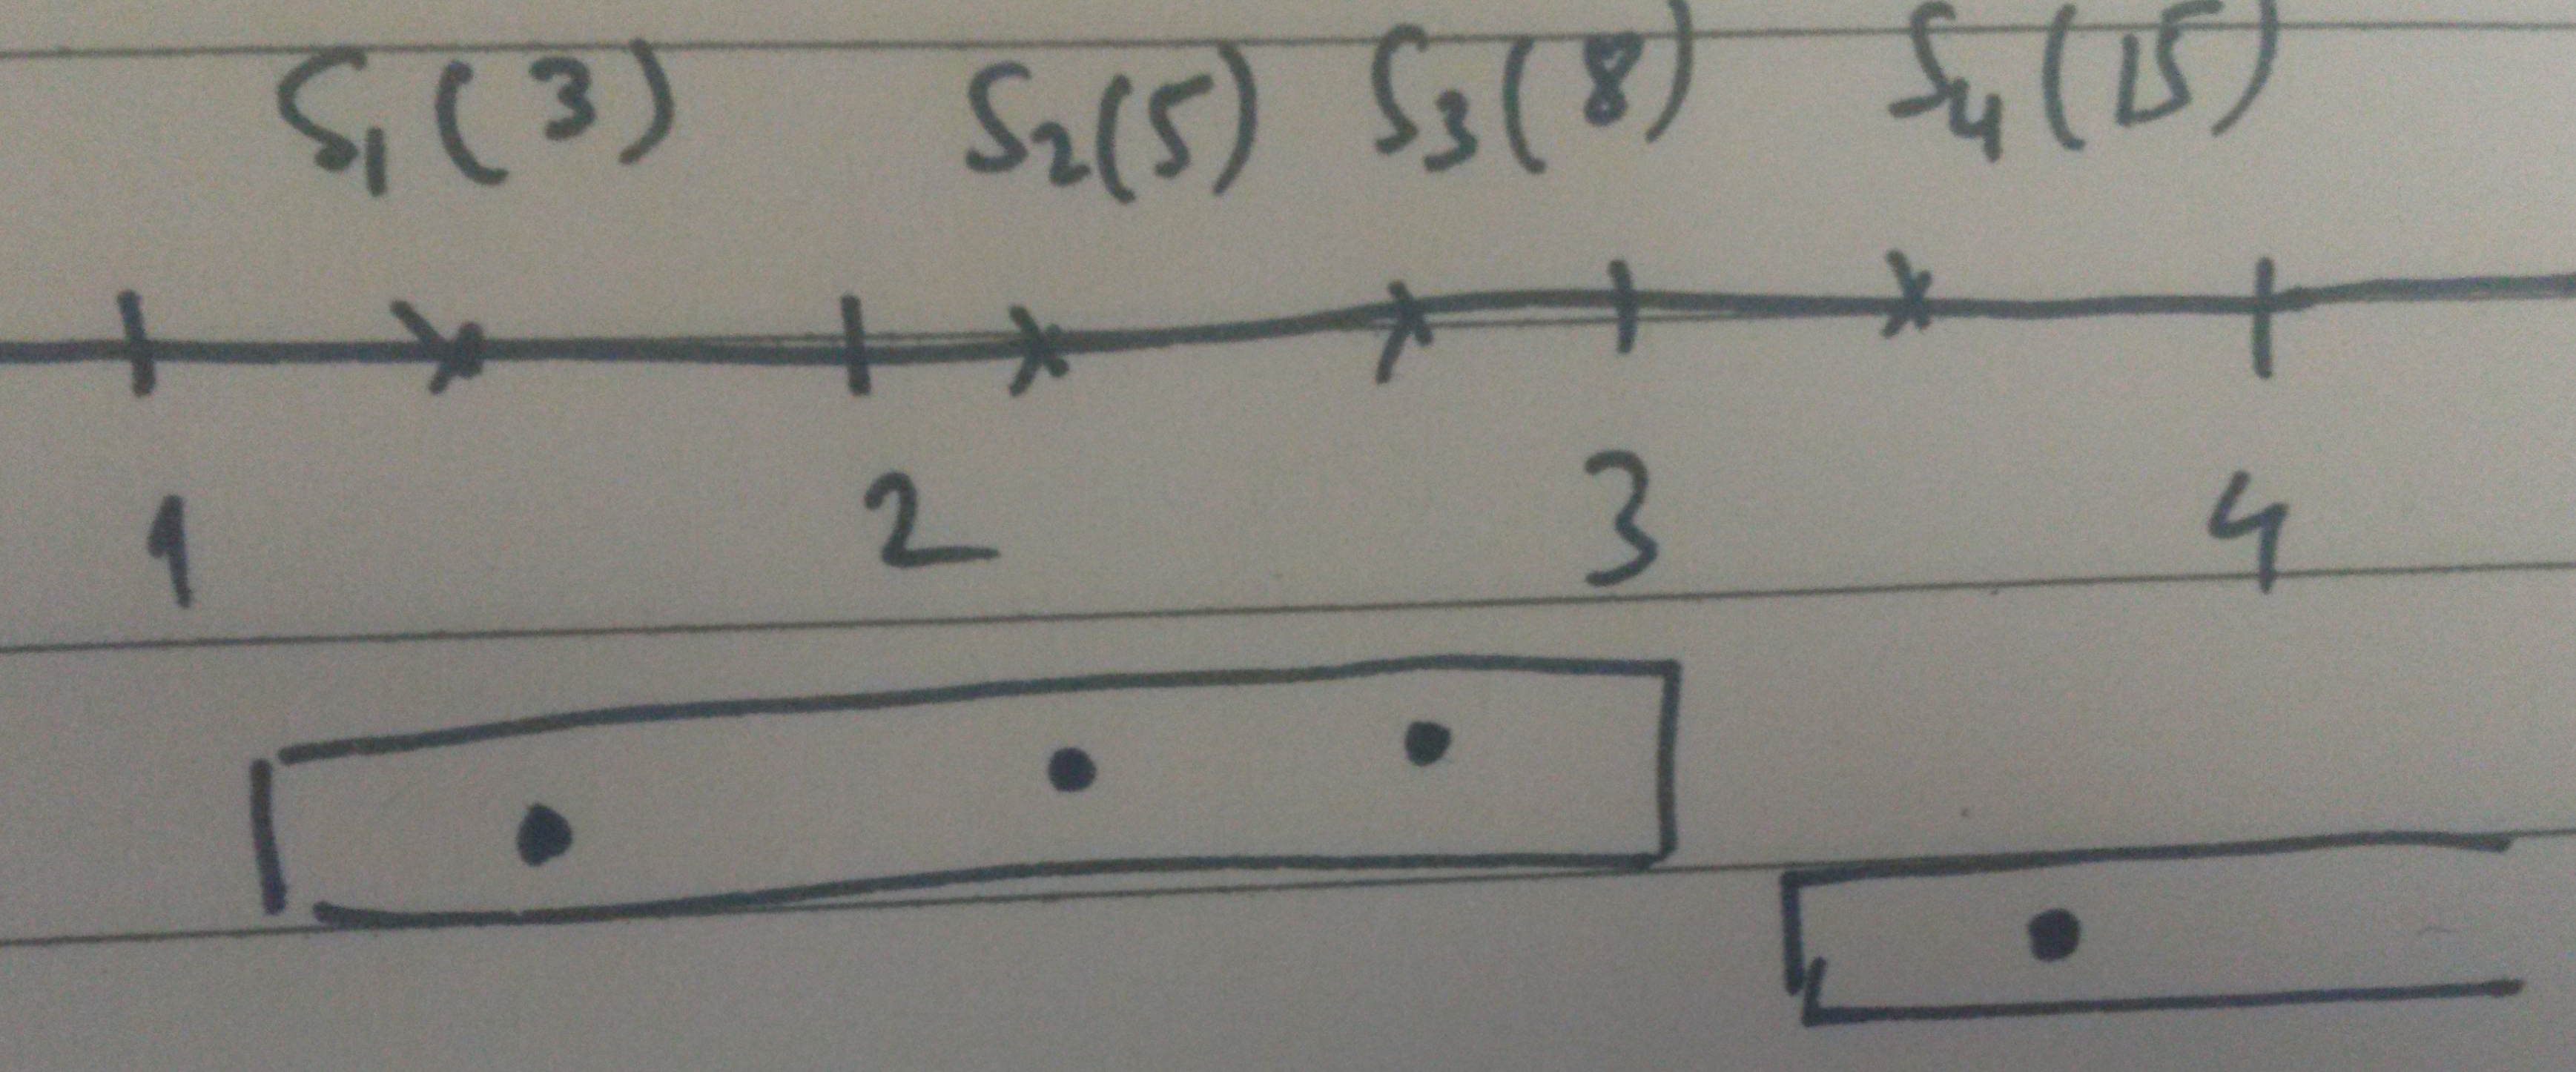 S1(3) S2(5) S3(8) S4(15)
1 2 3 4